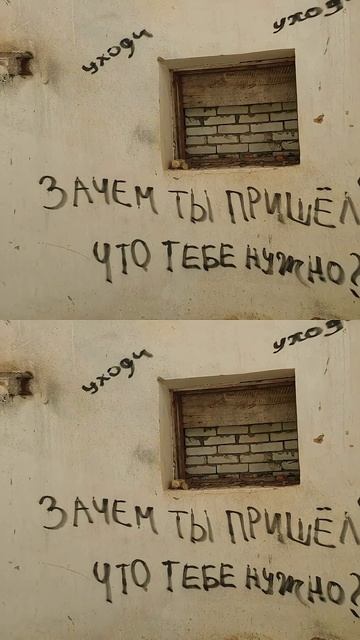 уходи
уходи
ЗАЧЕМ ТЫ ПРИШЁЛ
ЧТО ТЕБЕ НУЖНО?
уходи
уходи
ЗАЧЕМ ТЫ ПРИШЁЛ
ЧТО ТЕБЕ НУЖНО?